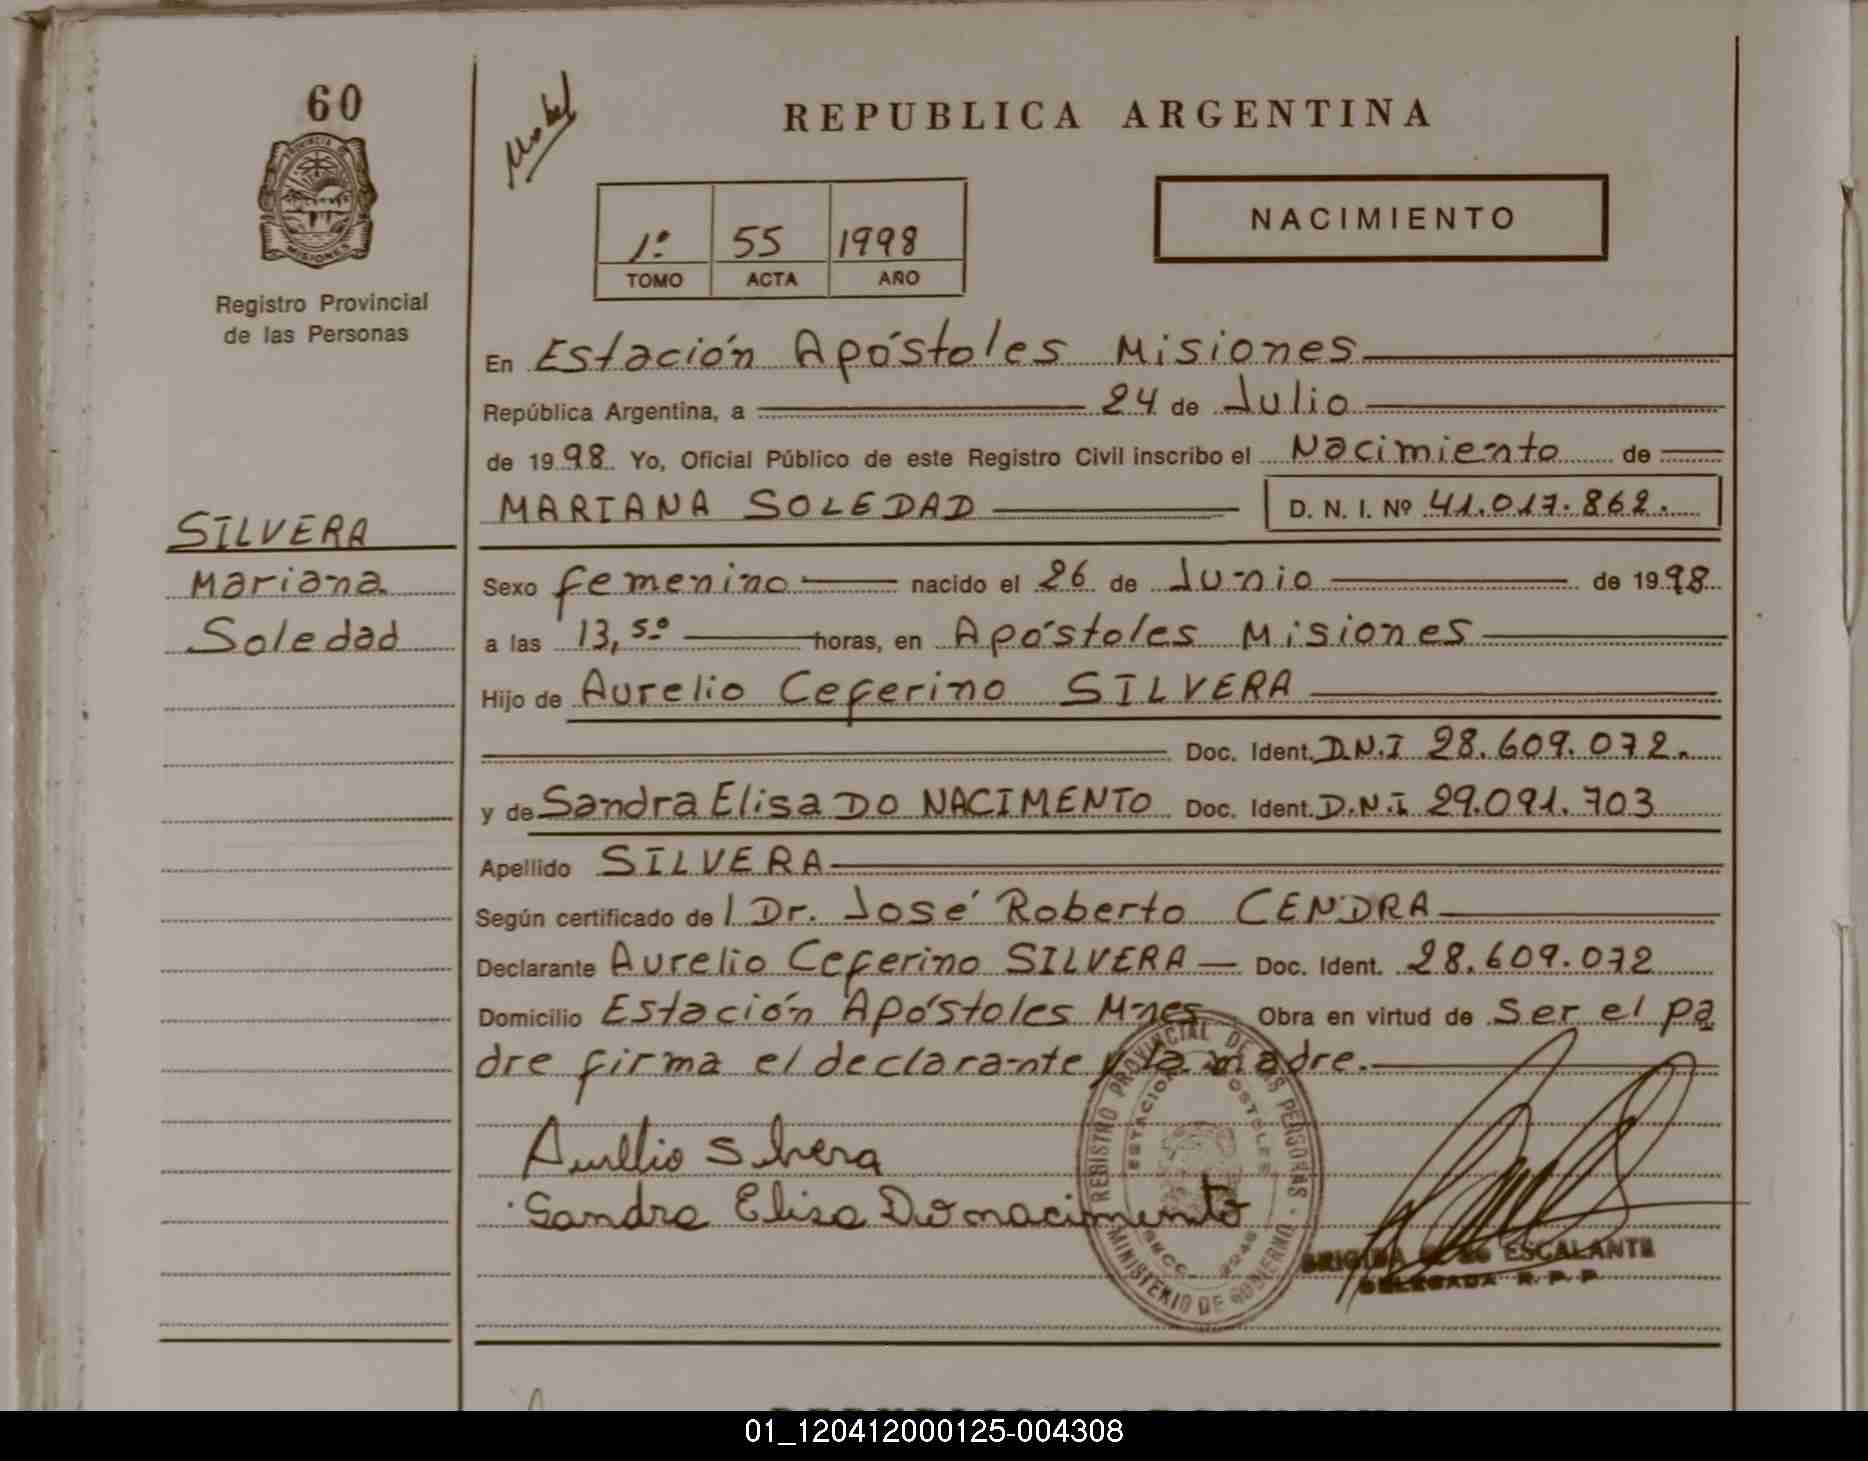 60
REPUBLICA ARGENTINA
NACIMIENTO
1º 55 1998
TOMO ACTA AÑO
Registro Provincial
de las Personas
MISIONES
En Estación Apóstoles Misiones
República Argentina, a 24 de Julio
de 1998 Yo, Oficial Público de este Registro Civil inscribo el Nacimiento de
MARIANA SOLEDAD D. N. I. Nº 41.017.862.
SILVERA
Mariana
Soledad
Sexo femenino nacido el 26 de Junio de 1998
a las 13,50 horas, en Apóstoles Misiones
Hijo de Aurelio Ceferino SILVERA
Doc. Ident. D.N.I 28.609.072.
y de Sandra Elisa DO NACIMENTO Doc. Ident. D.N.I. 29.091.703
Apellido SILVERA
Según certificado del Dr. José Roberto CENDRA
Declarante Aurelio Ceferino SILVERA Doc. Ident. 28.609.072
Domicilio Estación Apóstoles Mnes Obra en virtud de Ser el pa
dre firma el declarante y la madre.
Aurelio Silvera
Sandra Elisa Do nacimento
REGISTRO PROVINCIAL DE LAS PERSONAS
MINISTERIO DE GOBIERNO
ESTACION
ESCALANTE
DELEGADA R. P. P.
REPUBLICA ARGENTINA
01_120412000125-004308